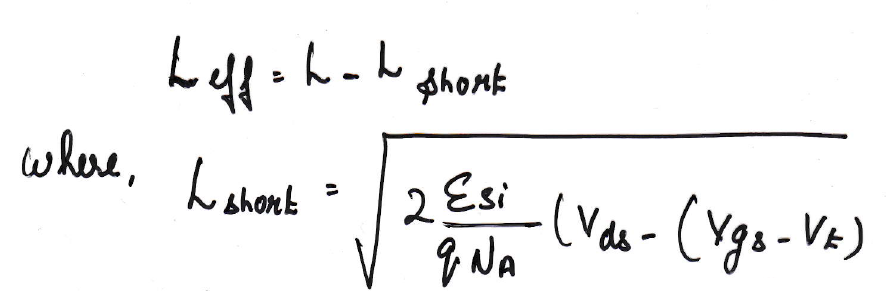 L eff = L - L short
where, L short = √(2 Esi / q NA (Vds - (Vgs - Vt)